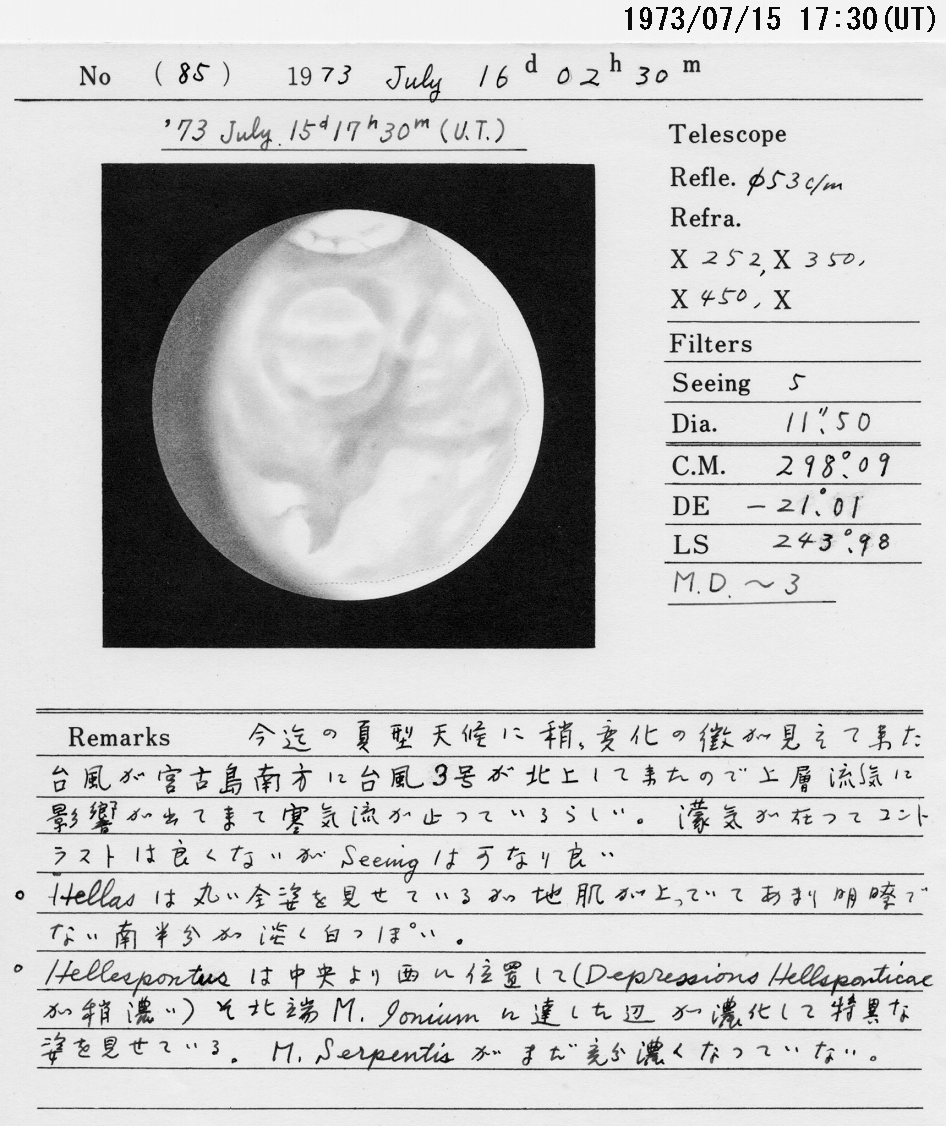 1973/07/15 17:30(UT)
No (85) 1973 July 16d 02h 30m
'73 July. 15d 17h 30m (U.T.)
Telescope
Refle. φ53c/m
Refra.
X 252, X 350,
X 450, X
Filters
Seeing 5
Dia. 11".50
C.M. 298°.09
DE −21°.01
LS 243°.98
M.D. ~ 3
Remarks 今迄の夏型天候に稍々変化の徴が見えて来た
台風が宮古島南方に台風3号が北上して来たので上層流気に
影響が出て来て寒気流が止っているらしい。濛気が在ってコント
ラストは良くないがSeeingは可なり良い
○ Hellasは丸い全姿を見せているが地肌が上っていてあまり明瞭で
ない南半分が淡く白っぽい。
○ Hellespontusは中央より西に位置して(Depressions Hellsponticae
が稍濃い)そ北端M. Ioniumに達した辺が濃化して特異な
姿を見せている。M. Serpentisがまだ充分濃くなっていない。